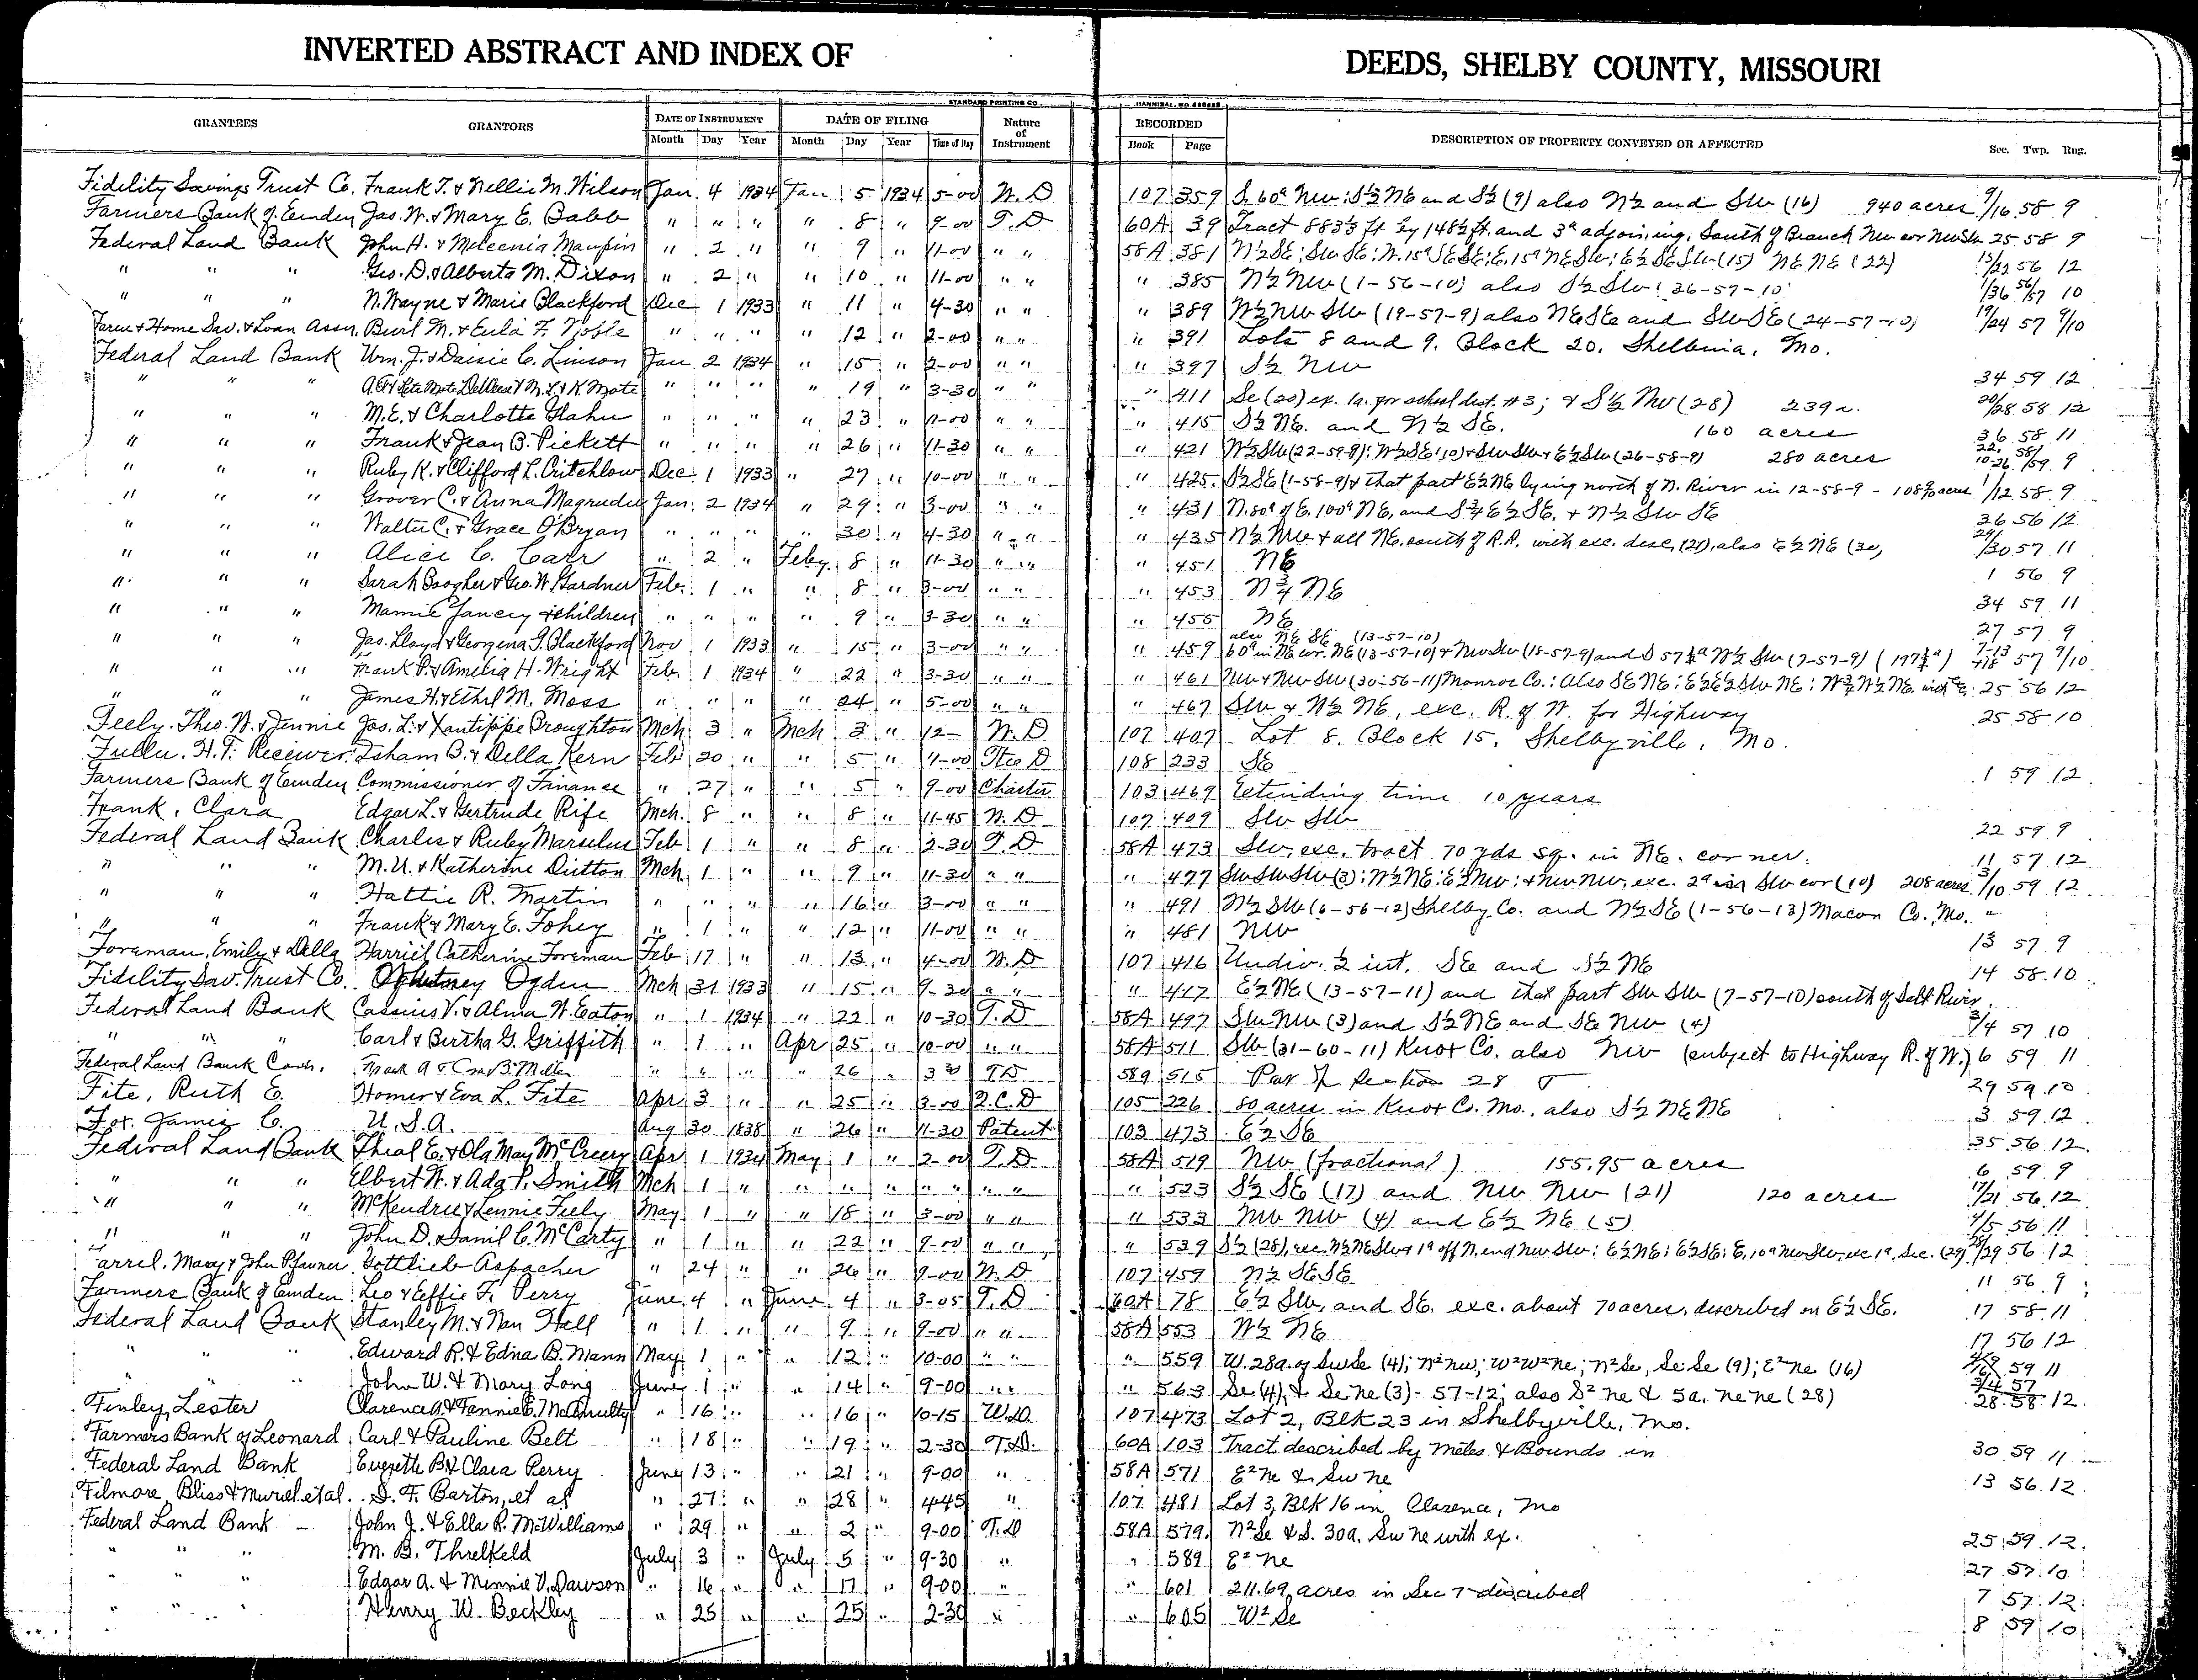 INVERTED ABSTRACT AND INDEX OF DEEDS, SHELBY COUNTY, MISSOURI
STANDARD PRINTING CO. HANNIBAL, NO.
GRANTEES GRANTORS DATE OF INSTRUMENT DATE OF FILING Nature of Instrument RECORDED DESCRIPTION OF PROPERTY CONVEYED OR AFFECTED Sec. Twp. Rng.
Month Day Year Month Day Year Time of Day Book Page
Fidelity Savings Trust Co. Frank T. & Nellie M. Wilson Jan. 4 1934 Jan 5 1934 5-00 W. D 107 359 S. 60a NW; S½ NE and S½ (9) also N½ and SW (16) 940 acres 9/16 58 9
Farmers Bank of Emden Jas. W. & Mary E. Babb " " " " 8 " 9-00 T. D 60A 39 Tract 883½ ft by 148½ ft. and 3a adjoining, South of Branch NW cor NWSW 25 58 9
Federal Land Bank John H. & Maupin " 2 " " 9 " 11-00 " " 58A 381 N½SE; SWSE; N.15a SESE; E.15a NESW; E½SESW (15) NE NE (22) 15/22 56 12
" " " Geo. D. & Alberta M. Dixon " 2 " " 10 " 11-00 " " " 385 N½ NW (1-56-10) also S½ SW (36-57-10) 1/36 56/57 10
" " " N. Wayne & Marie Blackford Dec 1 1933 " 11 " 4-30 " " " 389 W½ NW SW (19-57-9) also NESE and SWSE (24-57-10) 19/24 57 9/10
Farm & Home Sav. & Loan Assn. Burl M. & Eula F. Noble " " " " 12 " 2-00 " " " 391 Lots 8 and 9. Block 20. Shelbina, Mo.
Federal Land Bank Wm. J. & Daisie C. Linson Jan. 2 1934 " 15 " 2-00 " " " 397 S½ NW 34 59 12
" " " " " " " 19 " 3-30 " " " 411 Se (20) ex. 1a. for school dist. #3; & S½ NW (28) 239 a. 20/28 58 12
" " " M.E. & Charlotte Hahn " " " " 23 " 11-00 " " " 415 S½ NE. and N½ SE. 160 acres 36 58 11
" " " Frank & Jean B. Pickett " " " " 26 " 11-30 " " " 421 W½SW (22-59-9); W½SE (10) & SWSW & E½SW (26-58-9) 280 acres 22, 10-26 58/59 9
" " " Ruby K. & Clifford L. Critchlow Dec 1 1933 " 27 " 10-00 " " " 425 S½SE (1-58-9) & that part E½NE lying north of N. River in 12-58-9 - 108 acres 1/12 58 9
" " " Grover C. & Anna Magruder Jan. 2 1934 " 29 " 3-00 " " " 431 N.80a of E.100a NE, and S¾ E½ SE. & N½ SW SE 26 56 12
" " " Walter C. & Grace O'Bryan " " " " 30 " 4-30 " " " 435 N½ NW & all NE. south of R.R. with exc. desc. (29), also E½ NE (30) 29/30 57 11
" " " Alice C. Carr " 2 " Feby. 8 " 11-30 " " " 451 NE 1 56 9
" " " Sarah Boogher & Geo. W. Gardner Feb. 1 " " 8 " 3-00 " " " 453 N¾ NE 34 59 11
" " " Mamie Yancey & children " " " " 9 " 3-30 " " " 455 NE 27 57 9
also NE SE (13-57-10)
" " " Jas. Lloyd & Georgena T. Blackford Nov 1 1933 " 15 " 3-00 " " " 459 60a in NE cor. NE (13-57-10) & NWSW (18-57-9) and S 57¾a W½ SW (7-57-9) (197¾a) 7-13 & 18 57 9/10
" " " Frank P. & Amelia H. Wright Feb. 1 1934 " 22 " 3-30 " " " 461 NW & NW SW (30-56-11) Monroe Co.; Also SE NE; E½E½SW NE; W¾ W½ NE. 25 56 12
" " " James H. & Ethel M. Moss " " " " 24 " 5-00 " " " 467 SW & W½ NE, exc. R. of W. for Highway 25 58 10
Feely, Theo. W. & Jennie Jas. L. & Xantippe Broughton Mch 3 " Mch 3 " 12- W. D 107 407 Lot 8. Block 15. Shelbyville, Mo.
Fuller, H.T. Receiver Isham B. & Della Kern Feb 20 " " 5 " 11-00 Ttee D 108 233 SE 1 59 12
Farmers Bank of Emden Commissioner of Finance " 27 " " 5 " 9-00 Charter 103 469 Extending time 10 years
Frank, Clara Edgar L. & Gertrude Rife Mch. 8 " " 8 " 11-45 W. D 107 409 SW SW 22 59 9
Federal Land Bank Charles & Ruby Marselus Feb 1 " " 8 " 2-30 T. D 58A 473 SW, exc. tract 70 yds sq. in NE. corner. 11 57 12
" " " M. U. & Katherine Dutton Mch 1 " " 9 " 11-30 " " " 477 SWSWSW (3); W½NE; E½NW; & NWNW, exc. 2a in SW cor (10) 208 acres 3/10 59 12
" " " Hattie R. Martin " " " " 16 " 3-00 " " " 491 N½ SW (6-56-12) Shelby Co. and N½SE (1-56-13) Macon Co., Mo. "
" " " Frank & Mary E. Fohey " 1 " " 12 " 11-00 " " " 481 NW 13 57 9
Foreman, Emily & Della Harriet Catherine Foreman Feb 17 " " 13 " 4-00 W. D 107 416 Undiv. ½ int. SE and S½ NE 14 58 10
Fidelity Sav. Trust Co. Ogden Mch 31 1933 " 15 " 9-30 " " " 417 E½ NE (13-57-11) and that part SW SW (7-57-10) south of Salt River.
Federal Land Bank Cassius V. & Alma W. Eaton " 1 1934 " 22 " 10-30 T. D 58A 497 SW NW (3) and S½ NE and SE NW (4) 3/4 57 10
" " " Carl & Bertha G. Griffith " 1 " Apr 25 " 10-00 " " 58A 511 SW (31-60-11) Knox Co. also NW (subject to Highway R. of W.) 6 59 11
Federal Land Bank Com. Frank A & Cora B. Miller " " " " 26 " 3 30 T D 589 515 Par of section 28 29 59 10
Fite, Ruth E. Homer & Eva L. Fite Apr 3 " " 25 " 3-00 Q.C.D 105 226 80 acres in Knox Co. Mo., also S½ NE NE 3 59 12
Fox, James C. U.S.A. Aug 30 1838 " 26 " 11-30 Patent 103 473 E½ SE 35 56 12
Federal Land Bank Theal E. & Ola May McCreery Apr 1 1934 May 1 " 2-00 T. D 58A 519 NW (fractional) 155.95 acres 6 59 9
" " " Elbert W. & Ada P. Smith Mch 1 " " " " " " " " 523 S½ SE (17) and NW NW (21) 120 acres 17/21 56 12
" " " McKendree & Lennie Feely May 1 " " 18 " 3-00 " " " 533 NW NW (4) and E½ NE (5) 4/5 56 11
" " " John D. & Danil C. McCarty " 1 " " 22 " 9-00 " " " 539 S½ (28), exc. W½NESW & 1a off N. end NWSW; E½NE; E½SE; E.10a NWSW, exc 1a. Sec. (29) 28/29 56 12
Farrel, Mary & John Pfanner Gottlieb Aspacher " 24 " " 26 " 9-00 W. D 107 459 N½ SESE 11 56 9
Farmers Bank of Emden Leo & Effie F. Perry June 4 " June 4 " 3-05 T. D 60A 78 E½ SW, and SE. exc. about 70 acres, described in E½ SE. 17 58 11
Federal Land Bank Stanley M. & Nan Hall " 1 " " 9 " 9-00 " " 58A 553 W½ NE 17 56 12
" " " Edward R. & Edna B. Mann May 1 " " 12 " 10-00 " " " 559 W. 28a. of SwSe (4); N² nw; W²W² ne; N² Se, Se Se (9); E² ne (16) 4/9 16 59 11
" " " John W. & Mary Long June 1 " " 14 " 9-00 " " " 563 Se (4), & Se ne (3)-57-12; also S² ne & 5a. ne ne (28) 3/4 57 28-58-12
Finley, Lester Clarence A. & Fannie E. McAnulty " 16 " " 16 " 10-15 W.D. 107 473 Lot 2, Blk 23 in Shelbyville, Mo.
Farmers Bank of Leonard Carl & Pauline Belt " 18 " " 19 " 2-30 T.D. 60A 103 Tract described by metes & Bounds in 30 59 11
Federal Land Bank Everette B. & Clara Perry June 13 " " 21 " 9-00 " 58A 571 E² ne & Sw ne 13 56 12
Filmore, Bliss & Muriel et al. S. F. Barton, et al " 27 " " 28 " 4 45 " 107 481 Lot 3, Blk 16 in Clarence, Mo
Federal Land Bank John J. & Ella R. McWilliams " 29 " " 2 " 9-00 T.D 58A 579 N² Se & S. 30a. Sw ne with ex. 25 59 12
" " " M. B. Threlkeld July 3 " July 5 " 9-30 " " 589 E² ne 27 57 10
" " " Edgar A. & Minnie V. Dawson " 16 " " 17 " 9-00 " " 601 211.69 acres in Sec 7 described 7 57 12
" " " Henry W. Beckley " 25 " " 25 " 2-30 " " 605 W² Se 8 59 10